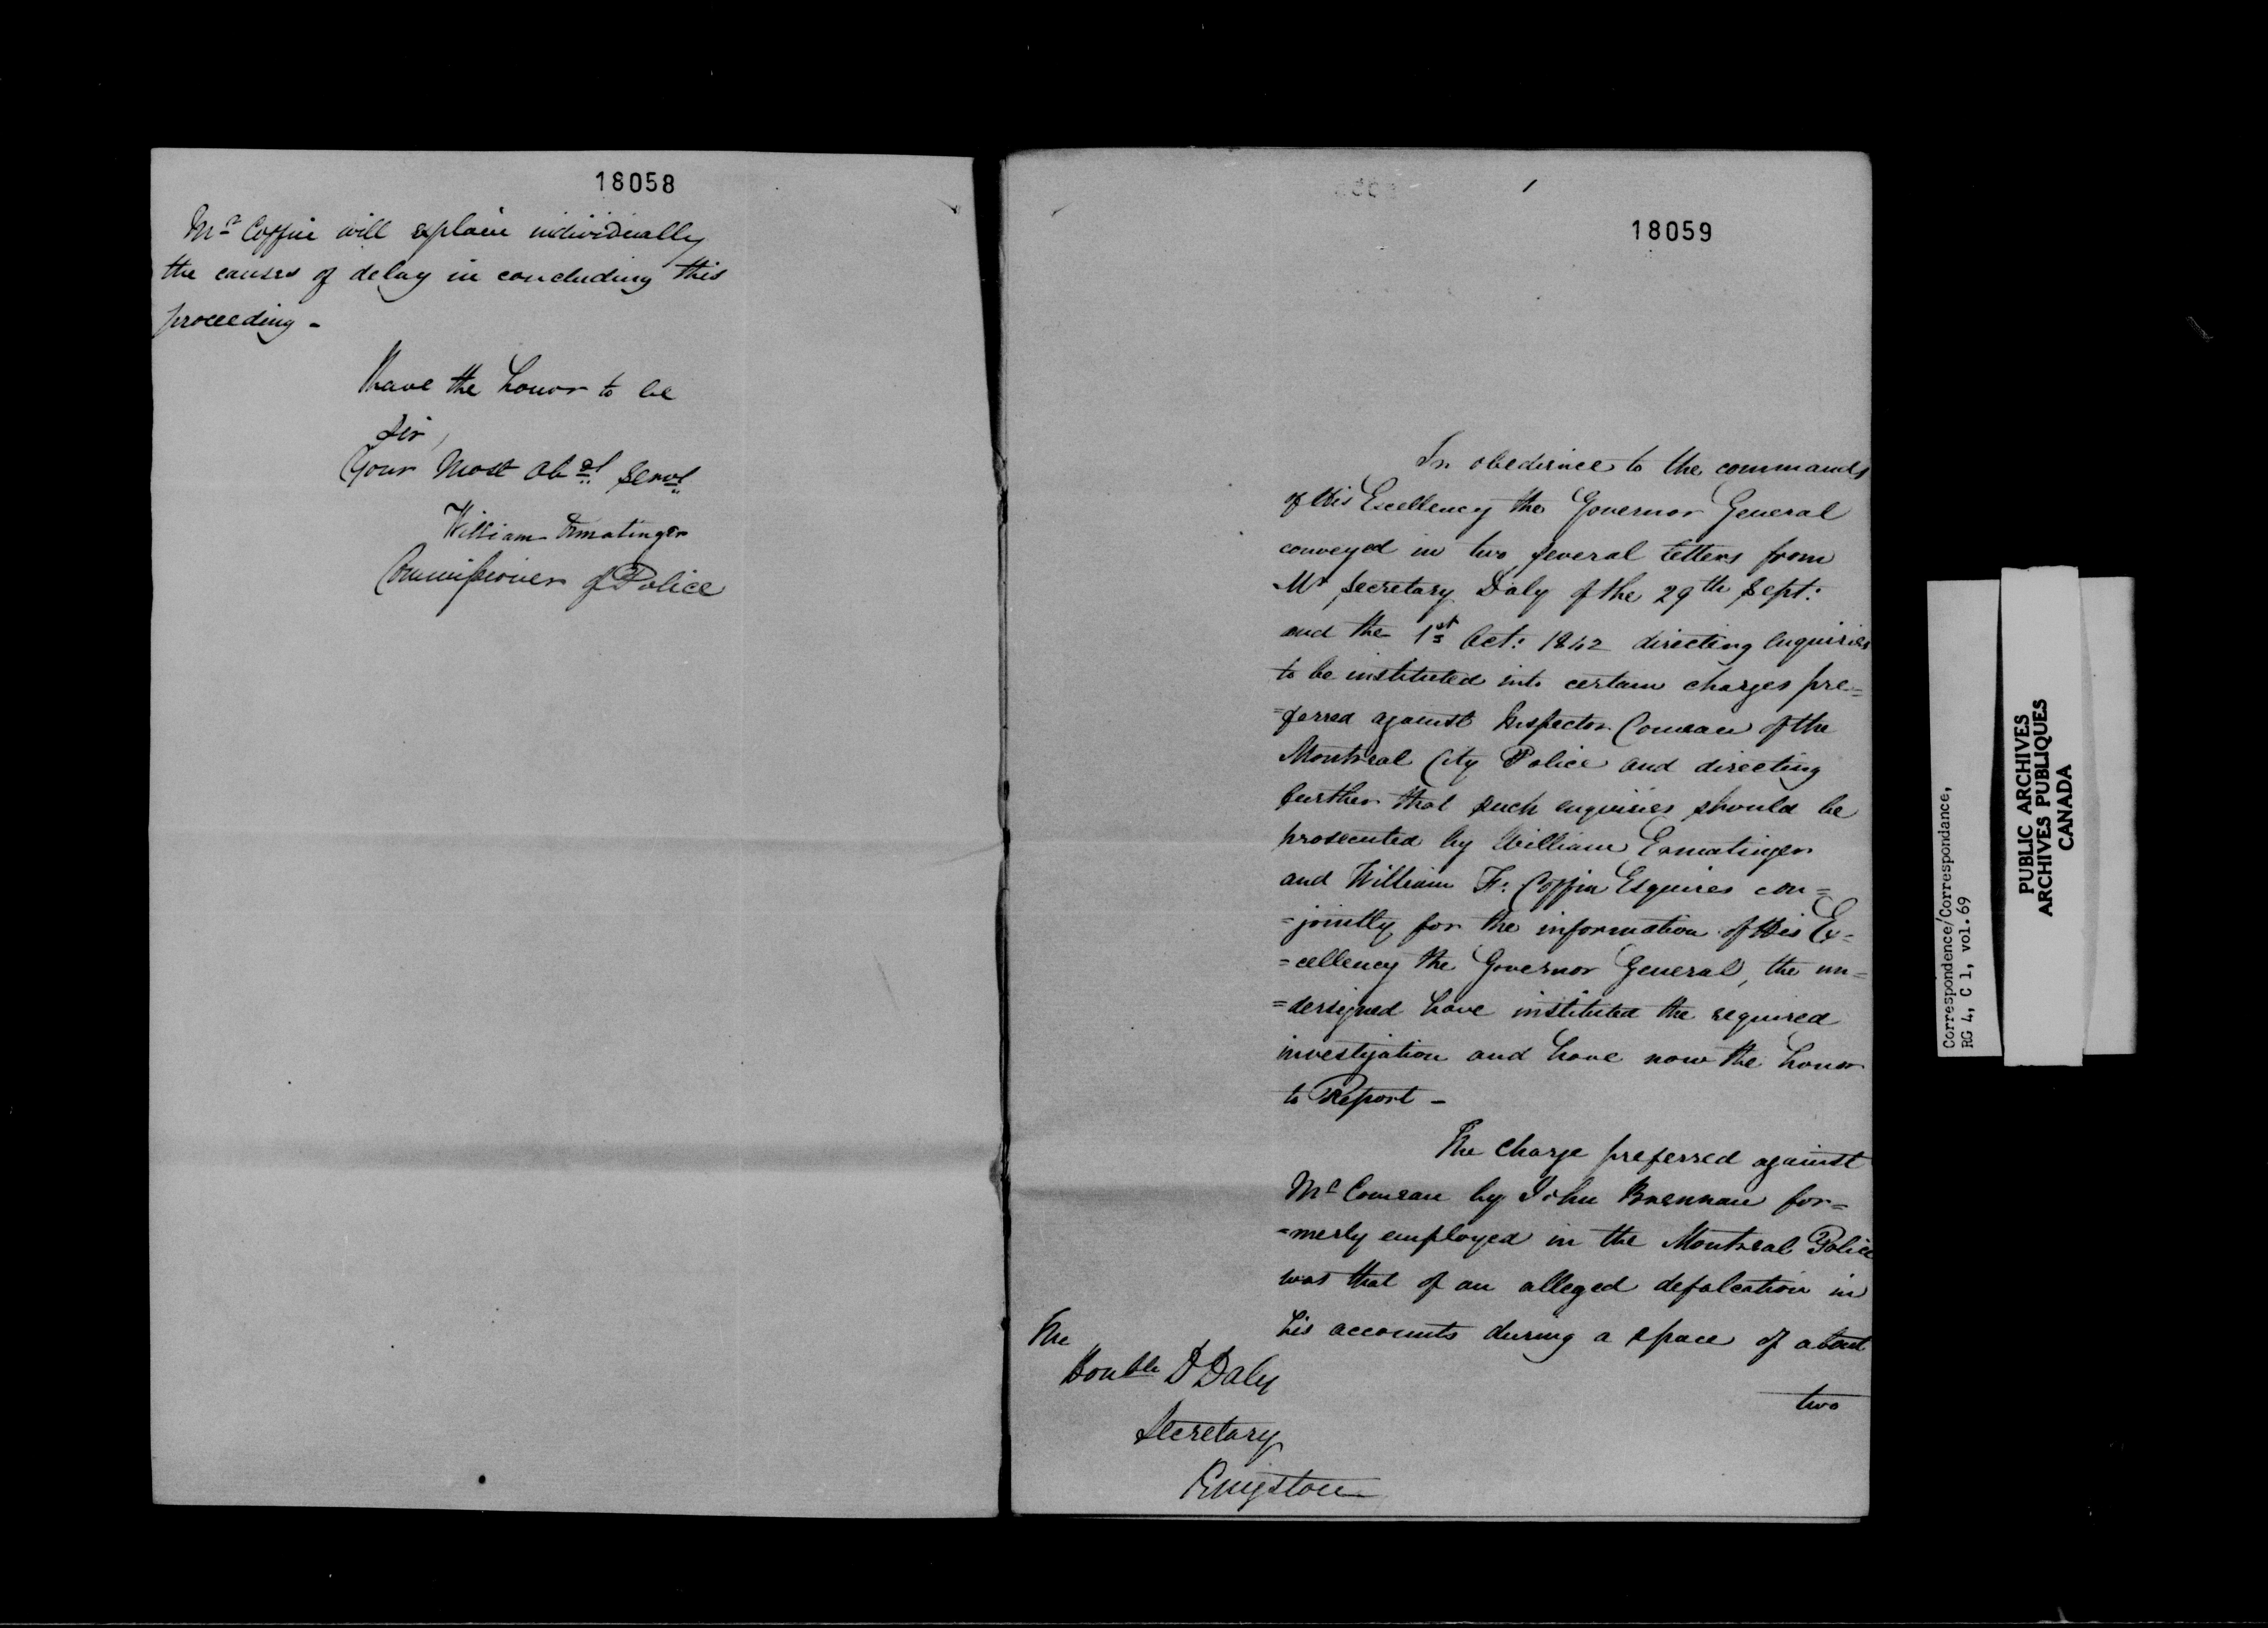 18058
Mr Coffin will explain individually
the causes of delay in concluding this
proceeding -
I have the honor to be
Sir,
Your Most Obdt Servt
William Ermatinger
Commissioner of Police
1
18059
In obedience to the commands
of His Excellency the Governor General
conveyed in two several letters from
Mr Secretary Daly of the 29th Sept:
and the 1st Oct: 1842 directing enquiries
to be instituted into certain charges pre=
=ferred against Inspector Comeau of the
Montreal City Police and directing
further that such enquiries should be
prosecuted by William Ermatinger
and William F. Coffin Esquires con=
=jointly for the information of His Ex=
=cellency the Governor General, the un=
=dersigned have instituted the required
investigation and have now the honor
to Report -
The Charge preferred against
Mr Comeau by John Brennan for=
=merly employed in the Montreal Police
was that of an alleged defalcation in
his accounts during a space of about
two
The
Honble D Daly
Secretary
Kingston
Correspondence/Correspondance,
RG 4, C 1, vol.69
PUBLIC ARCHIVES
ARCHIVES PUBLIQUES
CANADA